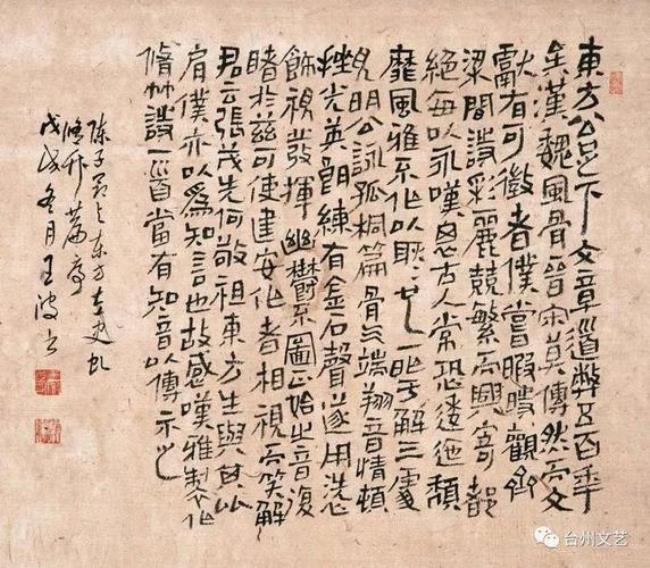 東方公足下文章道弊五百年
矣漢魏風骨晉宋莫傳然而文
獻有可徵者僕嘗暇時觀齊
梁間詩彩麗競繁而興寄都
絕每以永嘆思古人常恐逶迤頹
靡風雅不作以耿〻也一昨于解三處
見明公詠孤桐篇骨氣端翔音情頓
挫光英朗練有金石聲遂用洗心
飾視發揮幽鬱不圖正始之音復
睹於茲可使建安作者相視而笑解
君云張茂先何敬祖東方生與其比
肩僕亦以爲知言也故感嘆雅製作
脩竹詩一首當有知音以傳示之
陳子昂與東方左史虬
脩竹篇序
戊戌冬月王波書
台州文艺